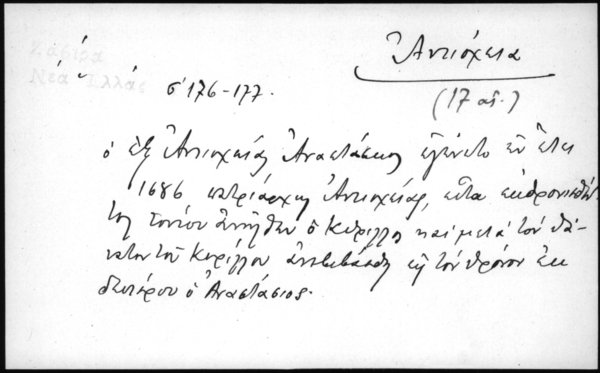 Ζάβιρα
Νέα Ἑλλάς
Ἀντιόχεια
σ 176-177.
(17 αἰ.)
ὁ ἐξ Ἀντιοχείας Ἀναστάσιος ἐγένετο ἐν ἔτει
1686 πατριάρχης Ἀντιοχείας, εἶτα ἐκθρονισθέν
τος τούτου ὁ Κύριλλος καὶ μετὰ τὸν θά-
νατον τοῦ Κυρίλλου ἀνεβιβάσθη εἰς τὸν θρόνον ἐκ
δευτέρου ὁ Ἀναστάσιος.